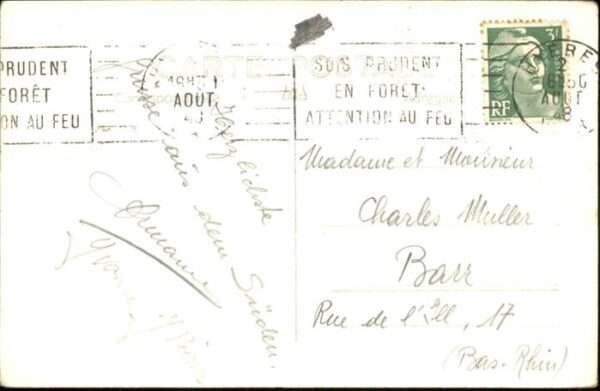 PRUDENT
FORÊT
ION AU FEU
CARTE POSTALE
AOUT
SOIS PRUDENT
EN FORET
ATTENTION AU FEU
3F
RF
AOUT
Herzlichste
Grüsse aus dem Süden.
Madame et Monsieur
Charles Muller
Barr
Rue de l'Ill, 17
(Bas-Rhin)